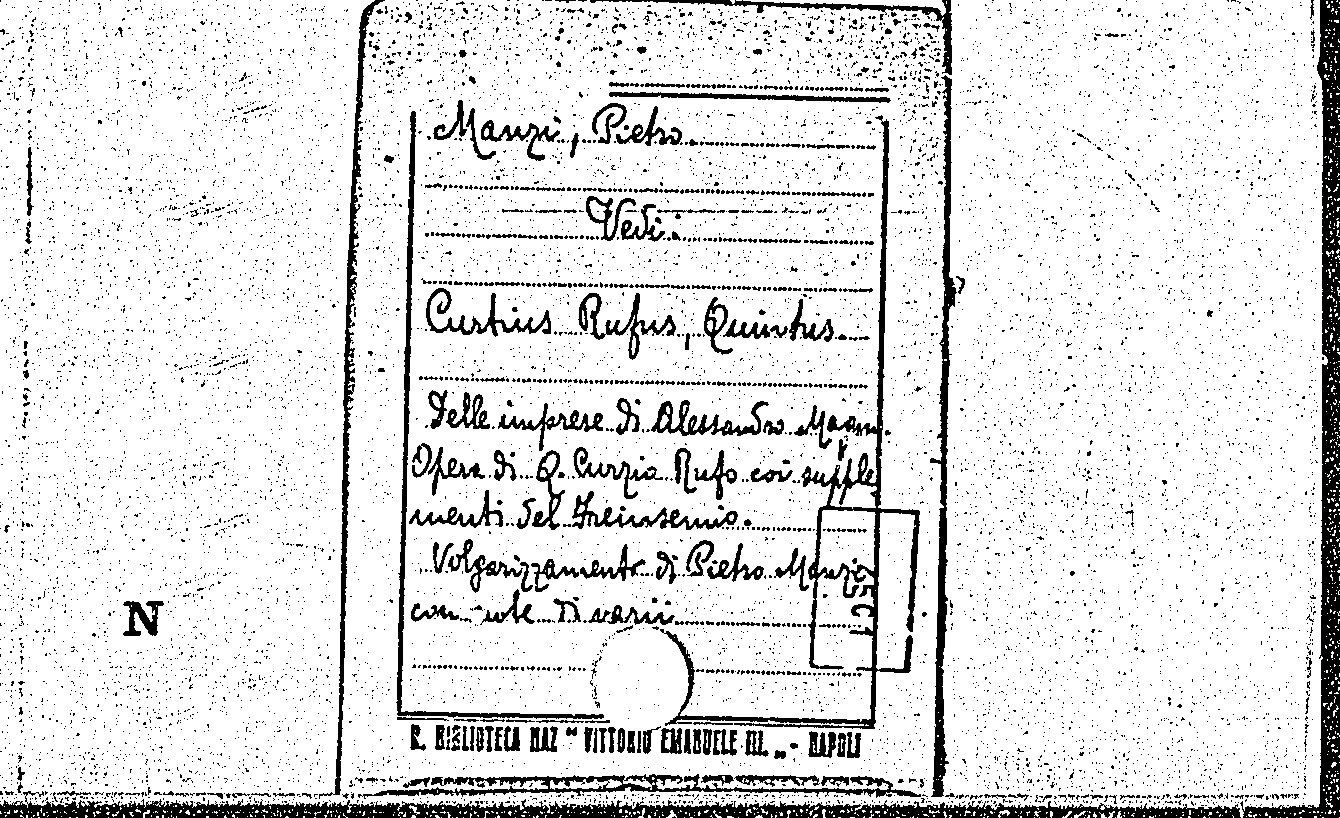 Manzi, Pietro.
Vedi:
Curtius Rufus, Quintus.
Delle imprese di Alessandro Magno.
Opera di Q. Curzio Rufo coi supple
menti del Freinsemio.
Volgarizzamento di Pietro Manzi
con note di varii
N
R. BIBLIOTECA NAZ " VITTORIO EMANUELE III. „ - NAPOLI